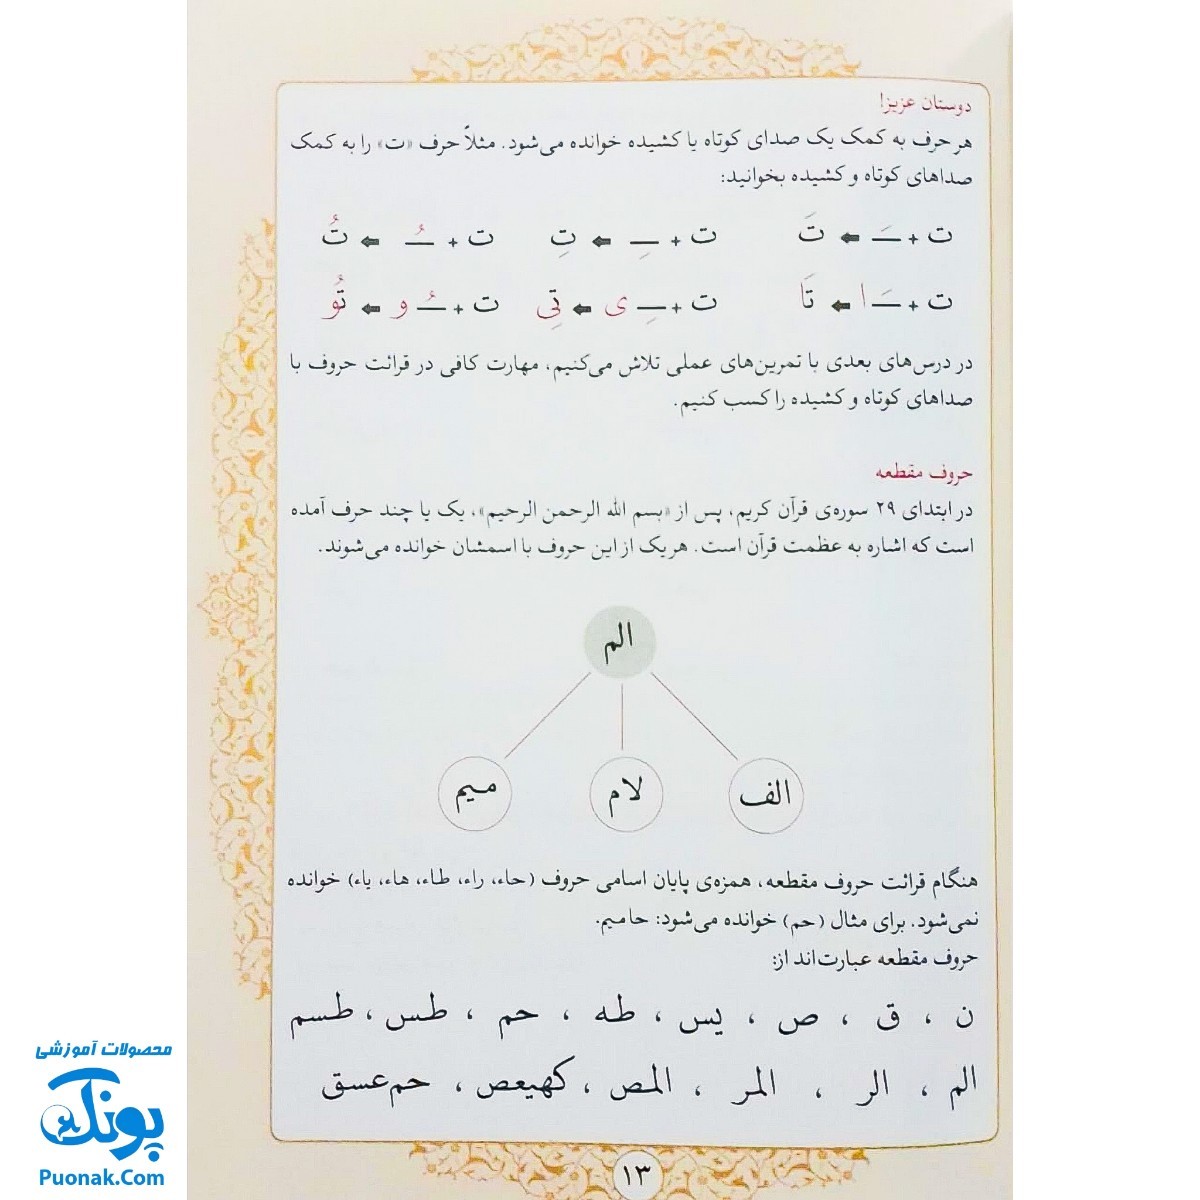 دوستان عزیز!
هر حرف به کمک یک صدای کوتاه یا کشیده خوانده می‌شود. مثلاً حرف «ت» را به کمک
صداهای کوتاه و کشیده بخوانید:
ت + ــَـ ⬅ تَ    ت + ــِـ ⬅ تِ    ت + ــُـ ⬅ تُ
ت + ــَـ ا ⬅ تَا    ت + ــِـ ی ⬅ تِی    ت + ــُـ و ⬅ تُو
در درس‌های بعدی با تمرین‌های عملی تلاش می‌کنیم، مهارت کافی در قرائت حروف با
صداهای کوتاه و کشیده را کسب کنیم.
حروف مقطعه
در ابتدای ۲۹ سوره‌ی قرآن کریم، پس از «بسم الله الرحمن الرحیم»، یک یا چند حرف آمده
است که اشاره به عظمت قرآن است. هر یک از این حروف با اسمشان خوانده می‌شوند.
الم
الف لام میم
هنگام قرائت حروف مقطعه، همزه‌ی پایان اسامی حروف (حاء، راء، طاء، هاء، یاء) خوانده
نمی‌شود. برای مثال (حم) خوانده می‌شود: حامیم.
حروف مقطعه عبارت‌اند از:
ن ، ق ، ص ، یس ، طه ، حم ، طس ، طسم
الم ، الر ، المر ، المص ، کهیعص ، حم‌عسق
۱۳
محصولات آموزشی
پونک
Puonak.Com